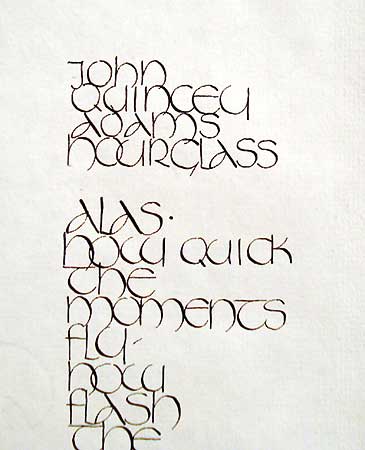 John
Quincey
Adams
Hourglass
Alas.
How quick
the
moments
fly.
How
flash
the